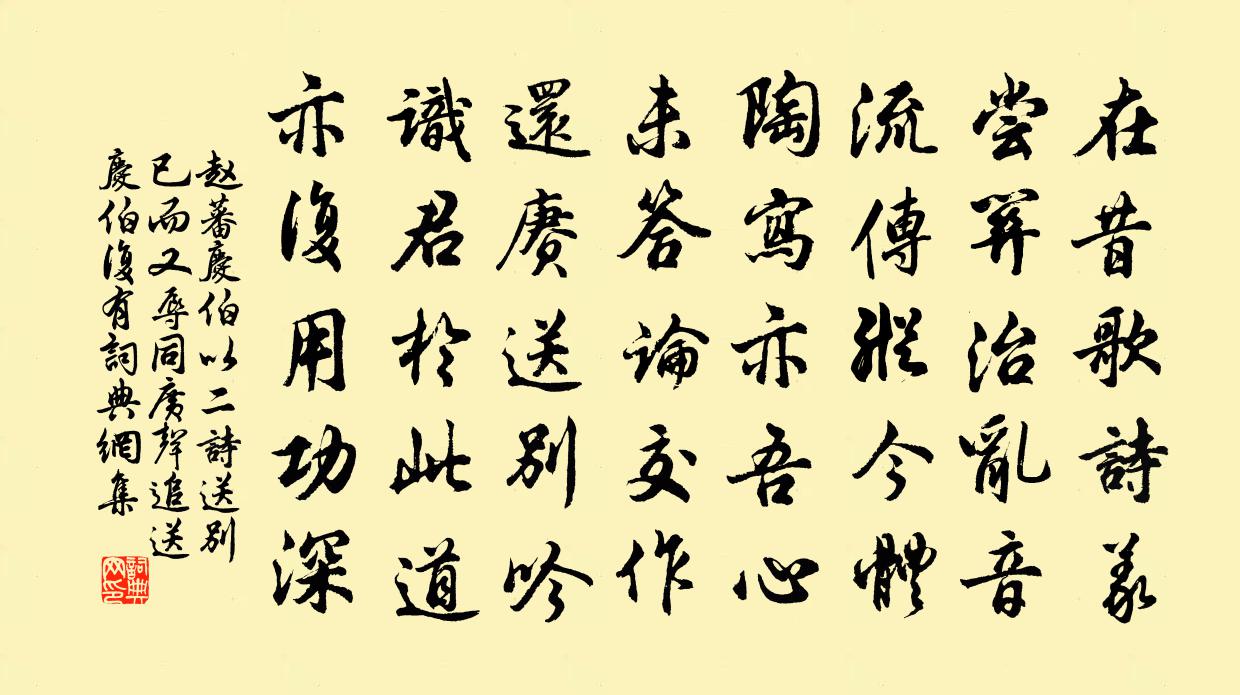 在昔歌詩義
嘗關治亂音
流傳縱今體
陶寫亦吾心
未答論交作
還賡送別吟
識君於此道
亦復用功深
赵蕃慶伯以二詩送別
已而又辱同廣聲追送
慶伯復有詞典網集
詞典网印